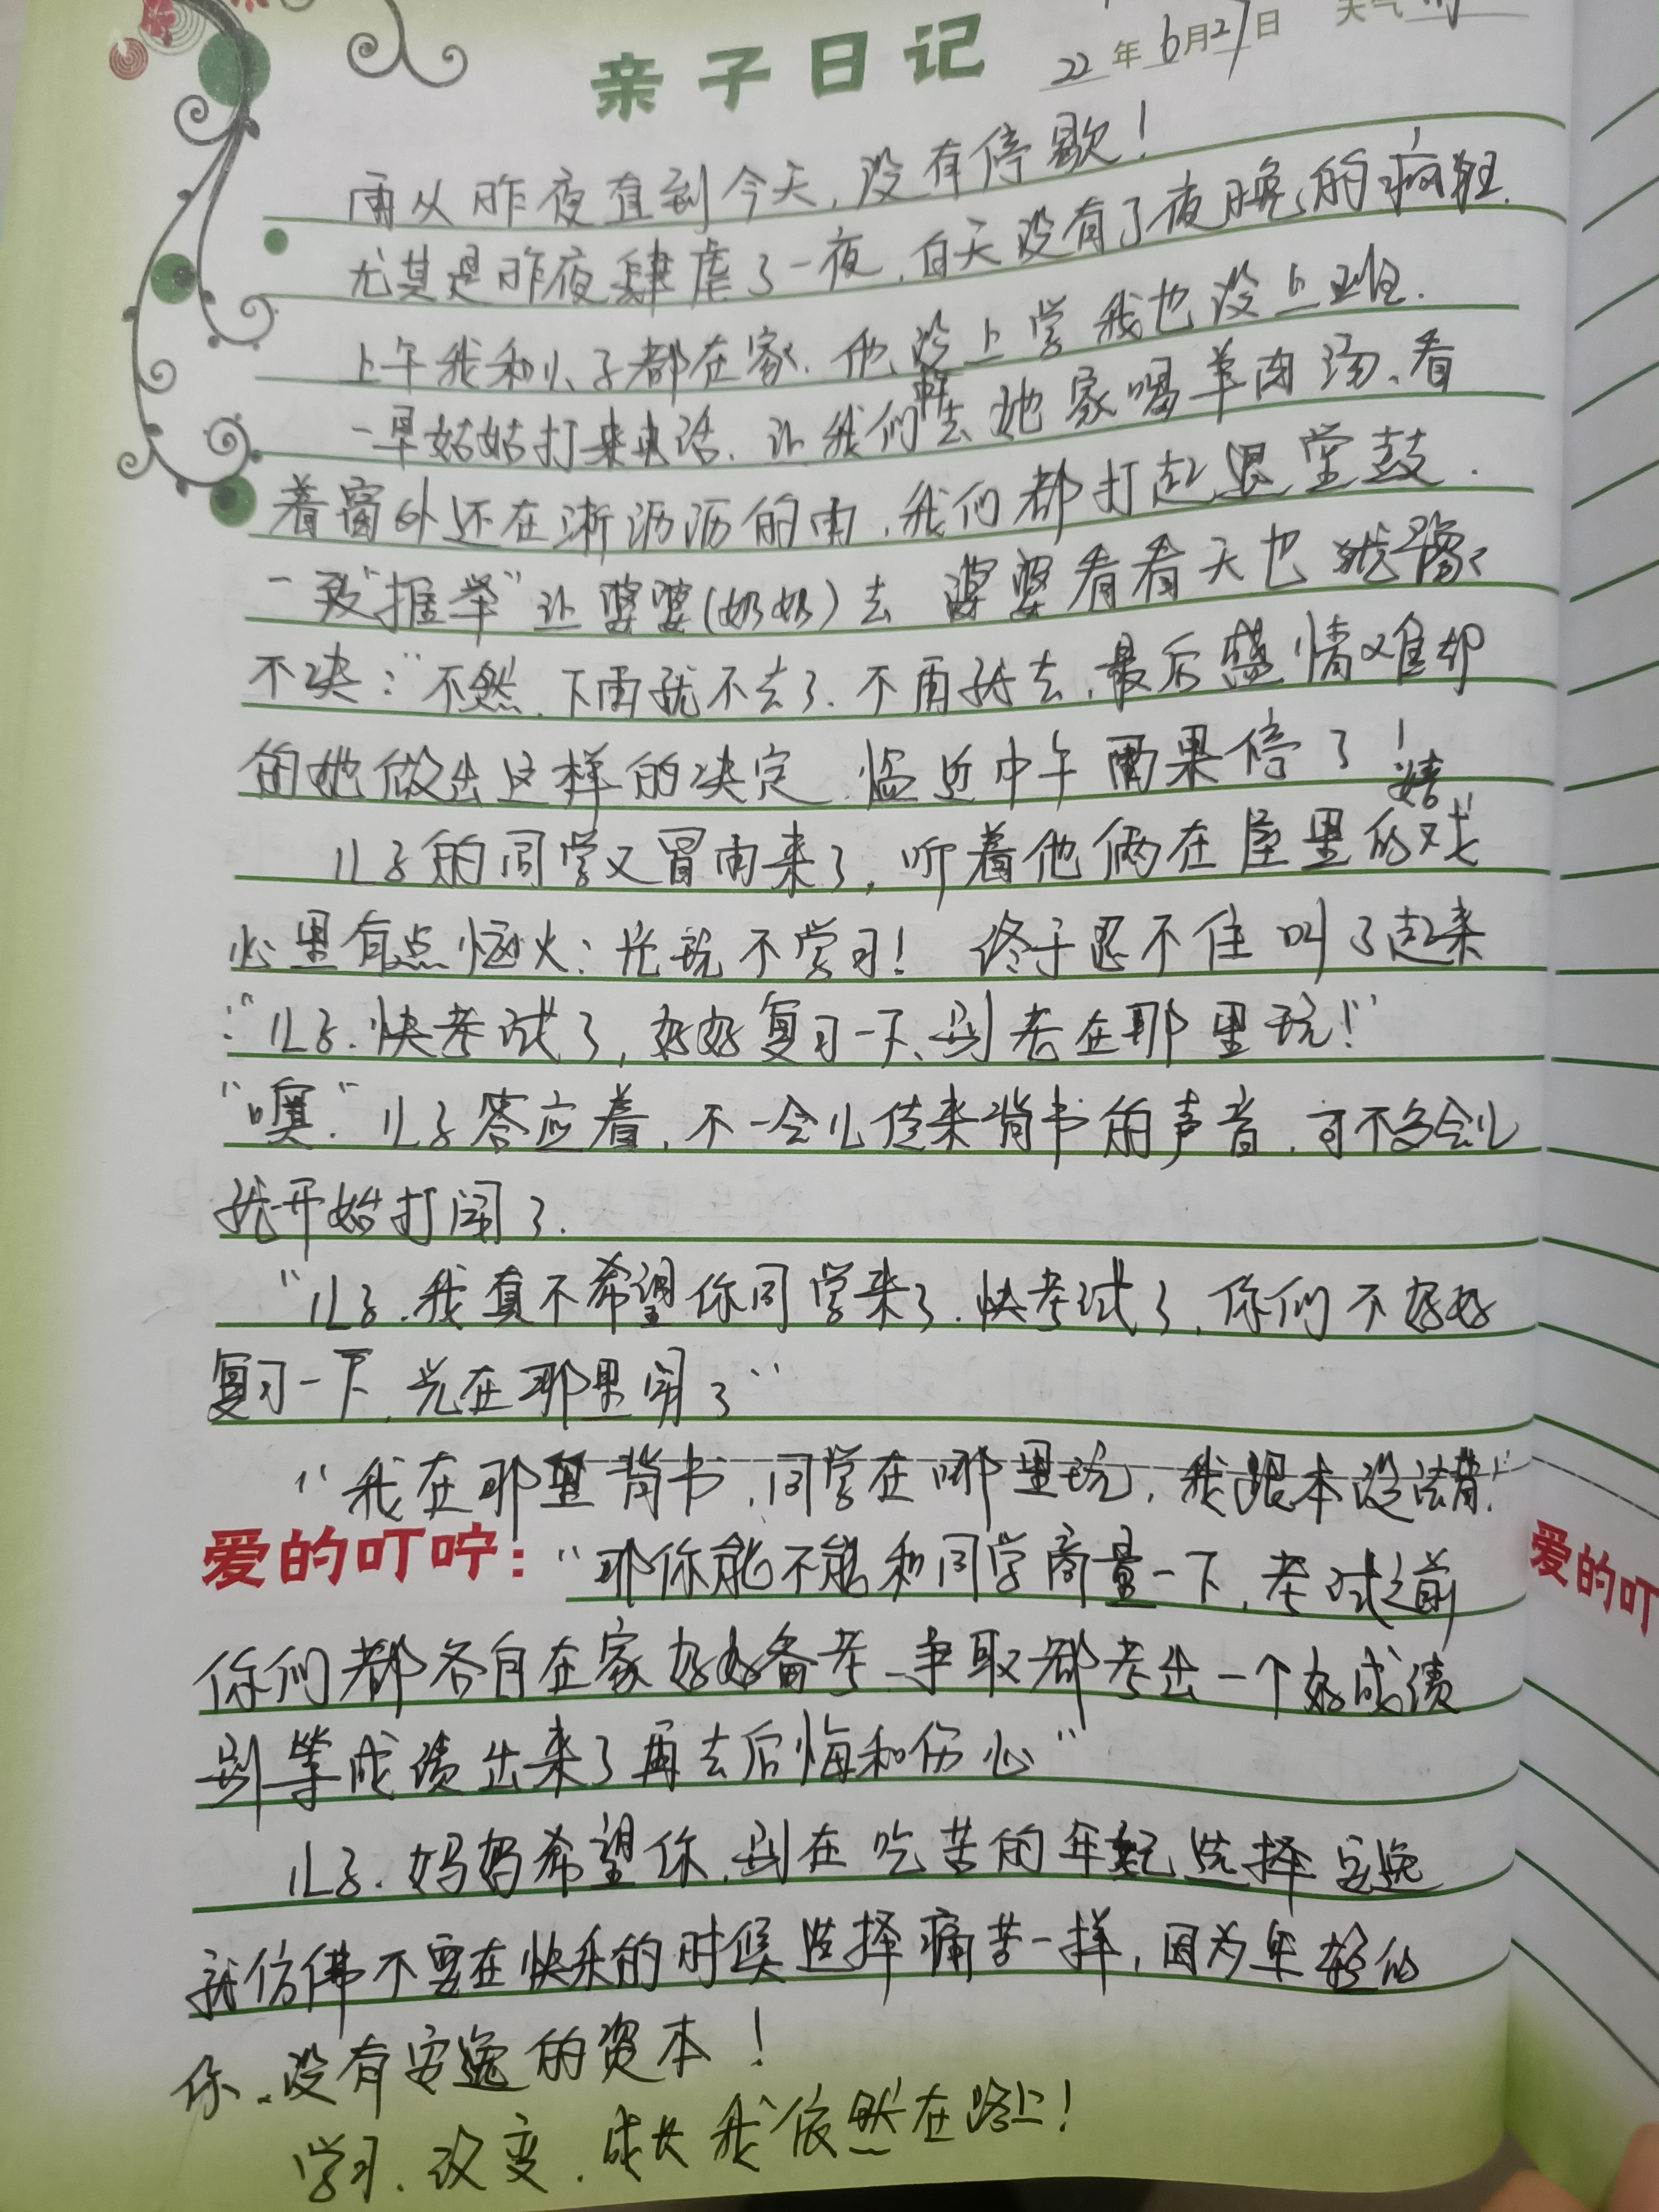 亲子日记
22年6月27日 天气
雨从昨夜直到今天，没有停歇！
尤其是昨夜肆虐了一夜，白天没有了夜晚的疯狂.
上午我和儿子都在家.他没上学我也没上班.
一早姑姑打来电话.让我们去她家喝羊肉汤、看
着窗外还在淅沥沥的雨，我们都打起退堂鼓.
一致"推举"让婆婆(奶奶)去 婆婆看看天也犹豫
不决："不然.下雨就不去了.不雨就去，最后盛情难却
的她做出这样的决定.临近中午雨果停了！
儿子的同学又冒雨来了，听着他俩在屋里的嬉戏
心里有点恼火：光玩不学习！ 终于忍不住叫了起来
："儿子.快考试了，好好复习一下、别老在那里玩！"
"噢."儿子答应着，不一会儿传来背书的声音，可不多会儿
就开始打闹了.
"儿子.我真不希望你同学来了.快考试了，你们不好好
复习一下，光在那里闹了"
"我在那里背书，同学在哪里玩，我跟本没法背."
爱的叮咛： "那你能不能和同学商量一下，考试之前
你们都各自在家好好备考、争取都考出一个好成绩
别等成绩出来了再去后悔和伤心"
儿子.妈妈希望你，别在吃苦的年纪选择安逸
就仿佛不要在快乐的时候选择痛苦一样，因为年轻的
你.没有安逸的资本！
学习.改变.成长我依然在路上！
爱的叮